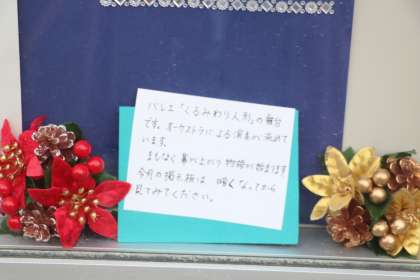 バレエ「くるみわり人形」の舞台
です。オーケストラによる演奏が流れて
います。
まもなく幕が上がり物語が始まります
今月の掲示板は 暗くなってから
見てみてください。